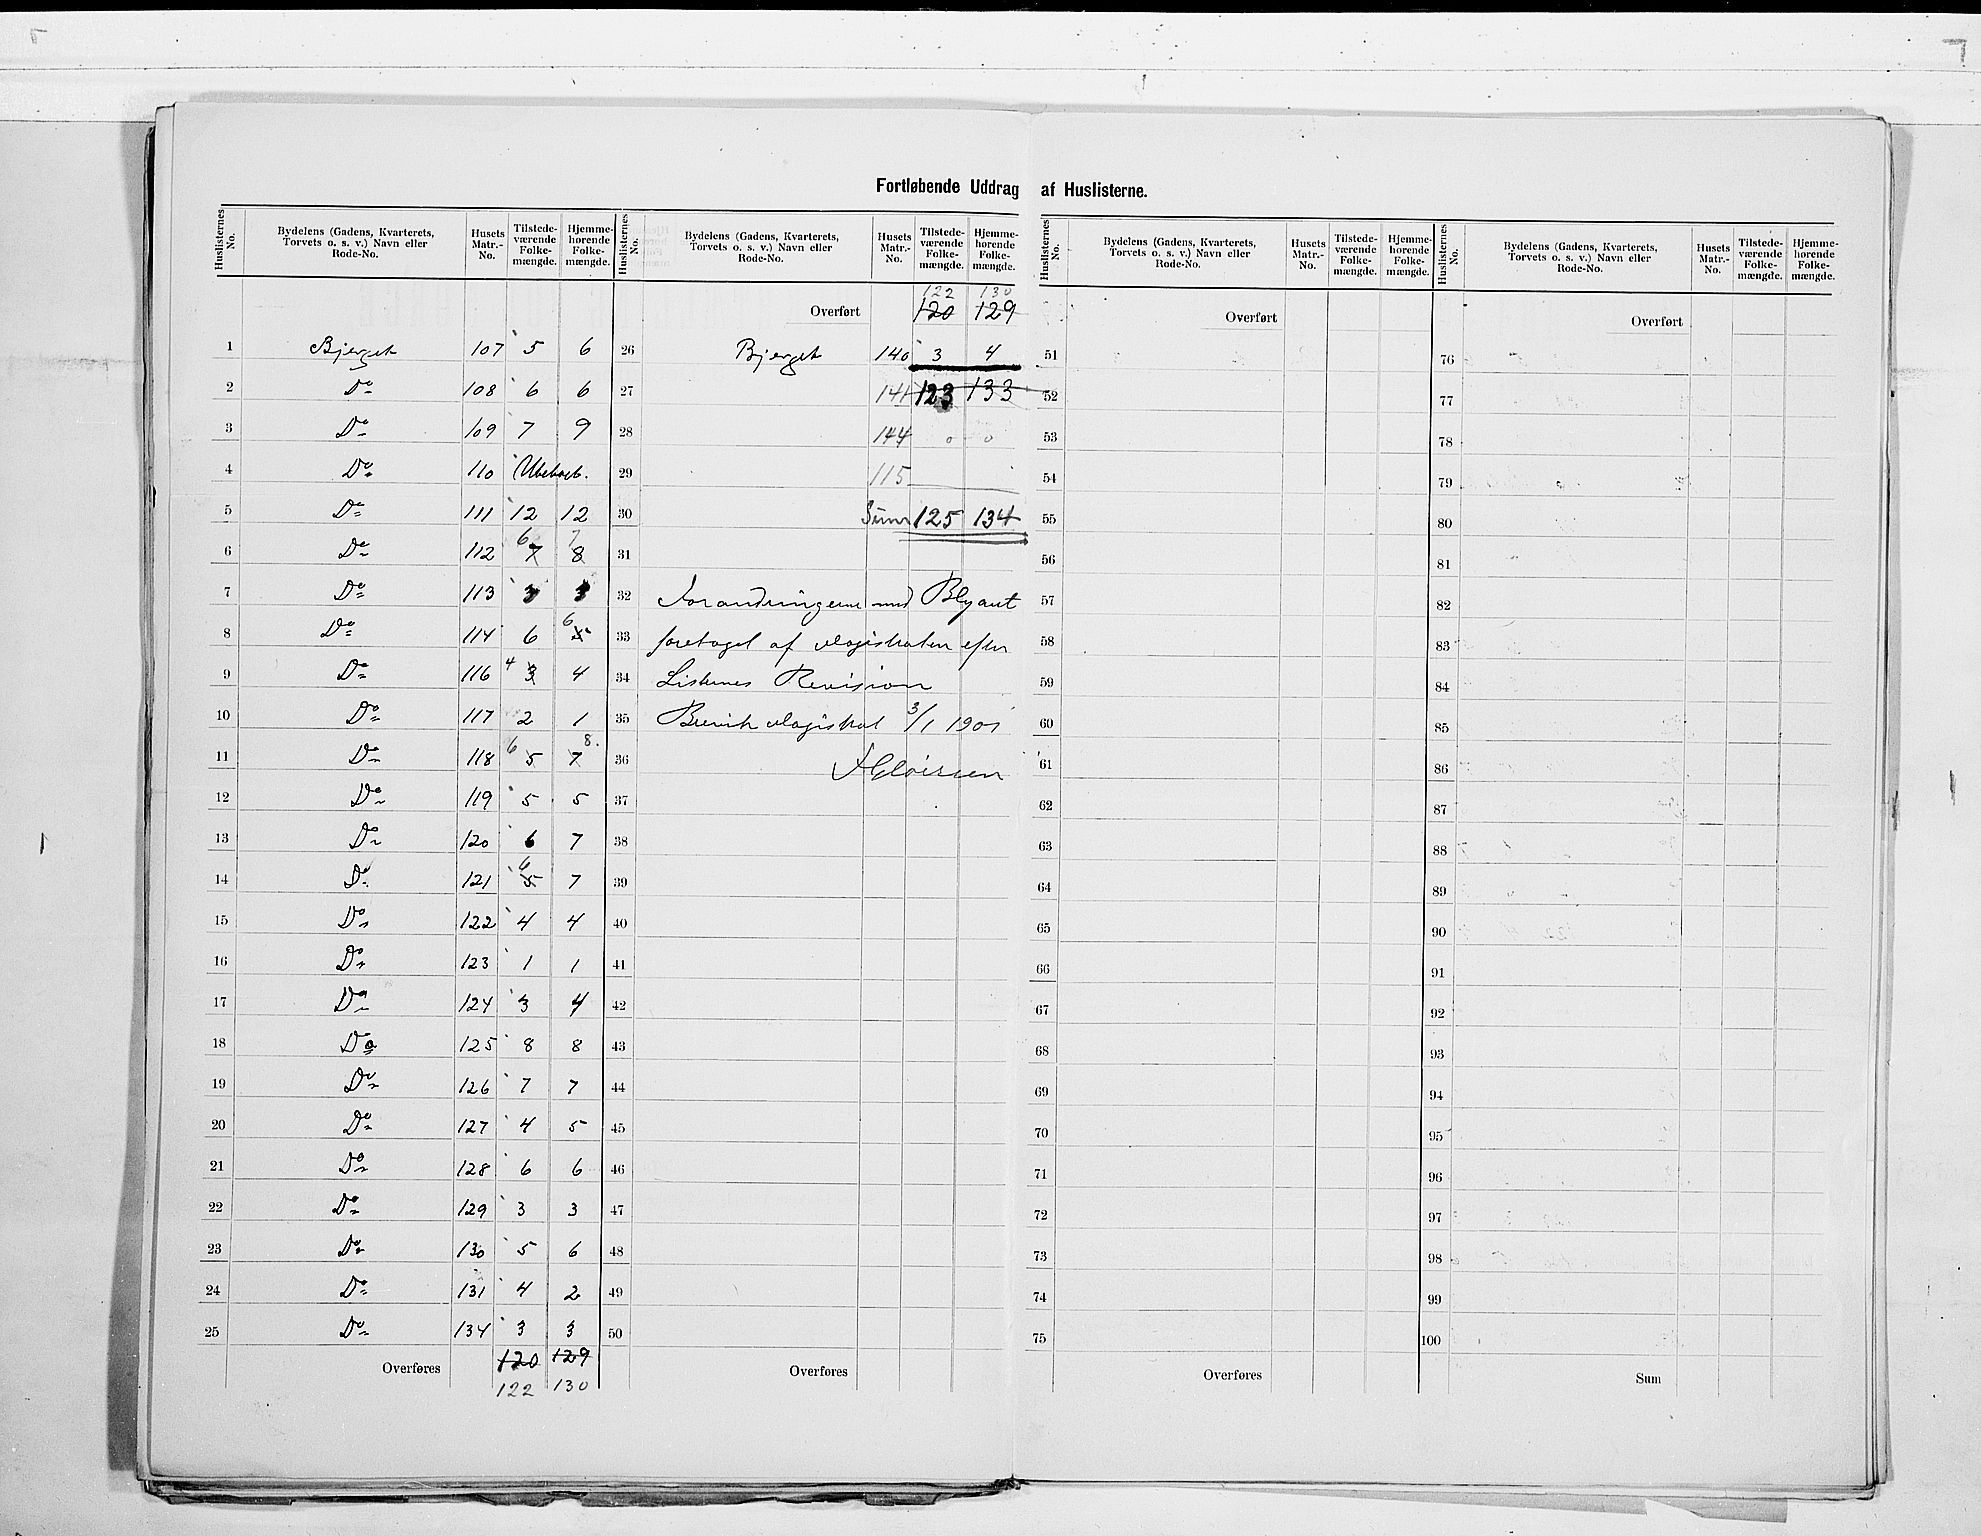 Fortløbende Uddrag af Huslisterne.
Huslisternes No. | Bydelens (Gadens, Kvarterets, Torvets o. s. v.) Navn eller Rode-No. | Husets Matr.-No. | Tilstedeværende Folkemængde. | Hjemmehørende Folkemængde.
1 Bjerget 107 5 6
2 Do 108 6 6
3 Do 109 7 9
4 Do 110 Ubeboet.
5 Do 111 12 12
6 Do 112 6 7 7 8
7 Do 113 3 3
8 Do 114 6 6 5
9 Do 116 4 3 4
10 Do 117 2 1
11 Do 118 6 5 7 8.
12 Do 119 5 5
13 Do 120 6 7
14 Do 121 6 5 7
15 Do 122 4 4
16 Do 123 1 1
17 Do 124 3 4
18 Do 125 8 8
19 Do 126 7 7
20 Do 127 4 5
21 Do 128 6 6
22 Do 129 3 3
23 Do 130 5 6
24 Do 131 4 2
25 Do 134 3 3
Overføres 120 129
122 130
Huslisternes No. | Bydelens (Gadens, Kvarterets, Torvets o. s. v.) Navn eller Rode-No. | Husets Matr.-No. | Tilstedeværende Folkemængde. | Hjemmehørende Folkemængde.
122 130
Overført 120 129
26 Bjerget 140 3 4
27 141 123 133
28 144 0 0
29 115
30 Sum 125 134
31
32 Forandringerne med Blyant
33 foretaget af Magistraten efter
34 Listernes Revision
35 Brevik Magistrat 3/1 1901
36
37
38
39
40
41
42
43
44
45
46
47
48
49
50
Overføres
Huslisternes No. | Bydelens (Gadens, Kvarterets, Torvets o. s. v.) Navn eller Rode-No. | Husets Matr.-No. | Tilstedeværende Folkemængde. | Hjemmehørende Folkemængde.
Overført
51
52
53
54
55
56
57
58
59
60
61
62
63
64
65
66
67
68
69
70
71
72
73
74
75
Overføres
Huslisternes No. | Bydelens (Gadens, Kvarterets, Torvets o. s. v.) Navn eller Rode-No. | Husets Matr.-No. | Tilstedeværende Folkemængde. | Hjemmehørende Folkemængde.
Overført
76
77
78
79
80
81
82
83
84
85
86
87
88
89
90
91
92
93
94
95
96
97
98
99
100
Sum